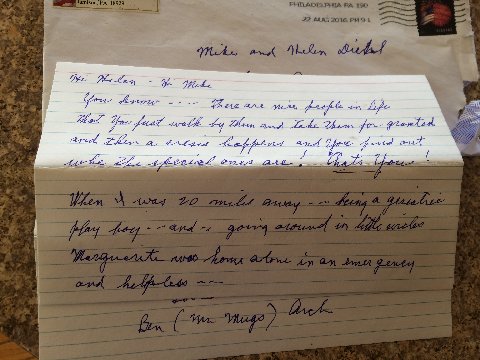 PHILADELPHIA PA 190
22 AUG 2016 PM 9 L
Mike and Helen
Hi Helen - Hi Mike
You know ---- There are nice people in life
that you just walk by them and take them for granted
and then a crisis happens and you find out
who the special ones are! That's You!
When I was 20 miles away --- being a geriatric
play boy -- and -- going around in little circles
Marguerite was home alone in an emergency
and helpless ---
Ben (Mr Mugs) Arch